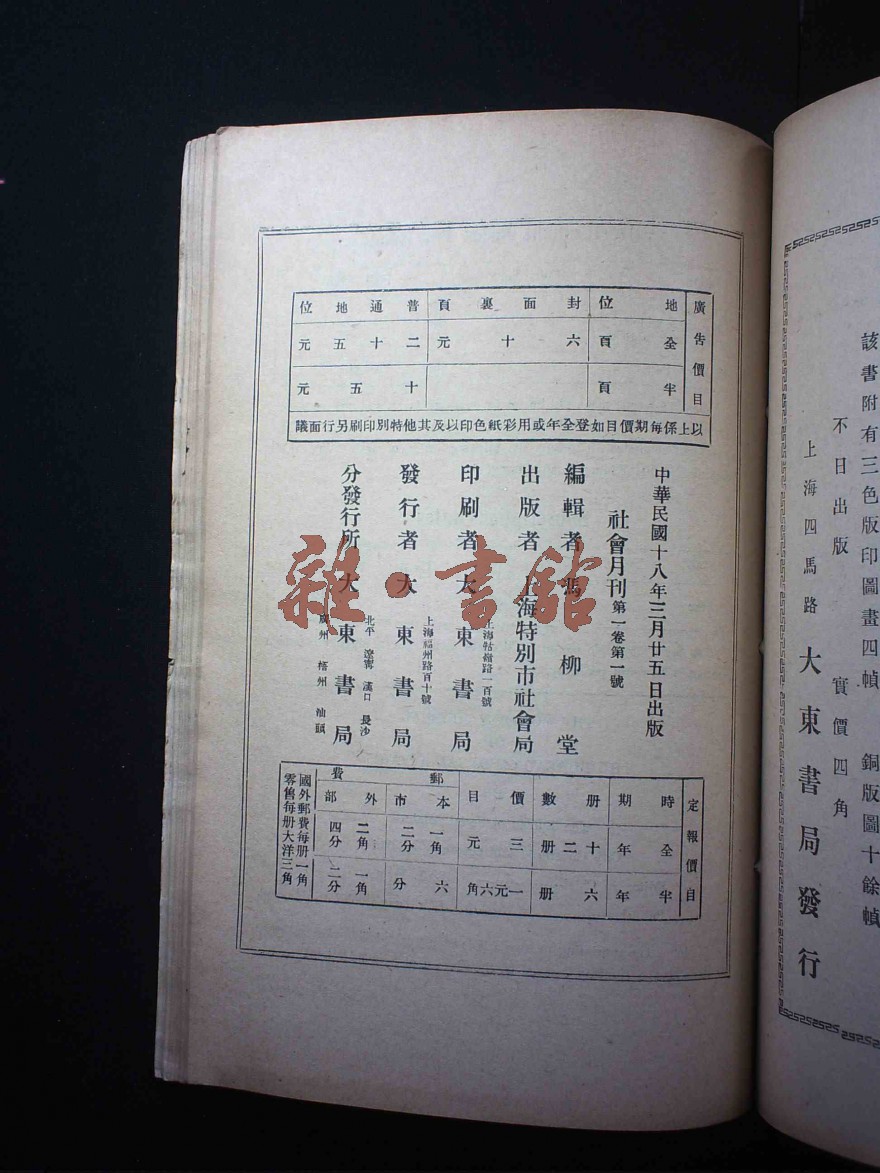 該書附有三色版印圖畫四幀 銅版圖十餘幀
不日出版 實價四角
上海四馬路 大東書局發行
廣告價目
地位 封面裏頁 普通地位
全頁 六十元 二十五元
半頁 十五元
以上係每期價目如登全年或用彩紙色印以及其他特別印刷另行面議
中華民國十八年三月廿五日出版
社會月刊 第一卷第一號
編輯者 馮柳堂
出版者 上海特別市社會局
印刷者 大東書局
上海牯嶺路一百號
發行者 大東書局
上海福州路百十號
分發行所 大東書局
北平 遼寧 漢口 長沙
廣州 梧州 汕頭
定報價目
時期 册數 價目 郵費
本市 外部
全年 十二册 三元 一角二分 二角四分
半年 六册 一元六角 六分 一角二分
國外郵費每册一角
零售每册大洋三角
雜·書館